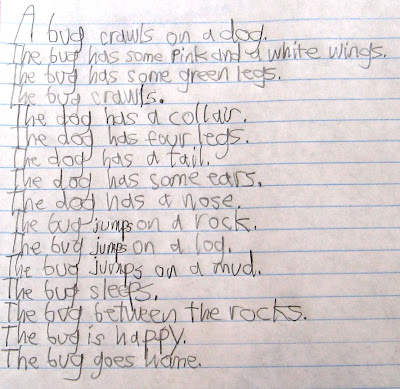 A bug crawls on a dog.
The bug has some pink and a white wings.
The bug has some green legs.
The bug crawls.
The dog has a collair.
The dog has four legs.
The dog has a tail.
The dog has some ears.
The dog has a nose.
The bug jumps on a rock.
The bug jumps on a log.
The bug jumps on a mud.
The bug sleeps.
The bug between the rocks.
The bug is happy.
The bug goes home.